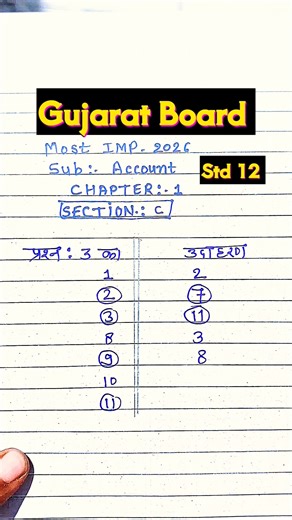 Gujarat Board
Most IMP. 2026
Sub:. Account
Std 12
CHAPTER:. 1
SECTION.: C
प्रश्न : 3 का उदाहरण
1 2
2 7
3 11
8 3
9 8
10
11